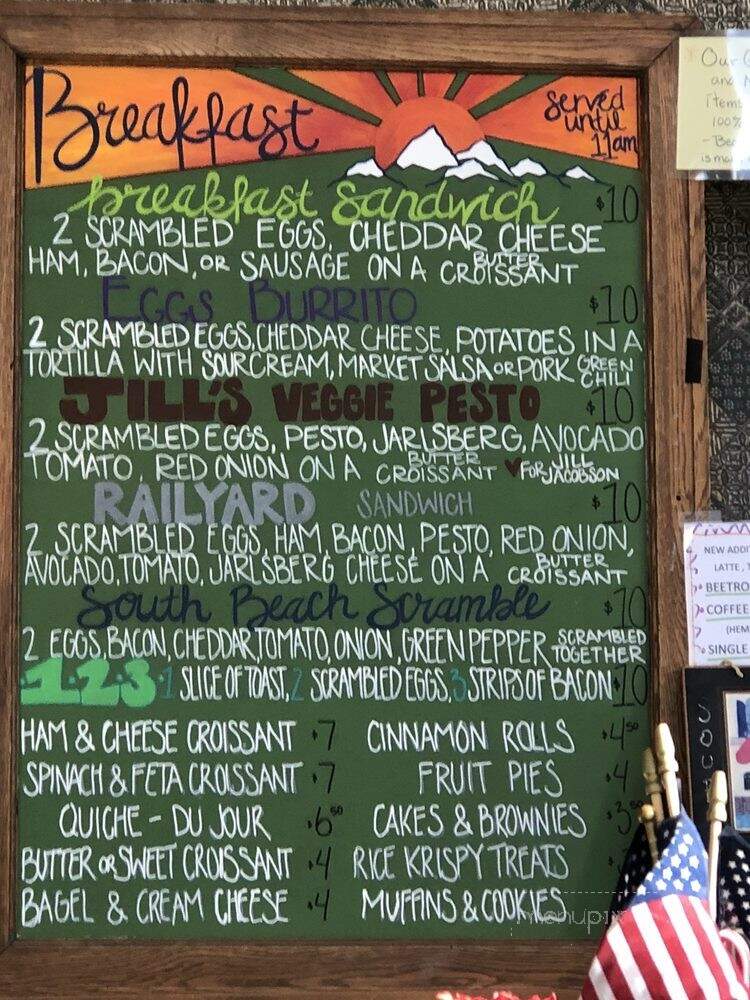 Breakfast
served
until
11am
breakfast sandwich $10
2 SCRAMBLED EGGS, CHEDDAR CHEESE
HAM, BACON, OR SAUSAGE ON A BUTTER CROISSANT
EGGS BURRITO $10
2 SCRAMBLED EGGS, CHEDDAR CHEESE, POTATOES IN A
TORTILLA WITH SOUR CREAM, MARKET SALSA OR PORK GREEN CHILI
JILL'S VEGGIE PESTO $10
2 SCRAMBLED EGGS, PESTO, JARLSBERG, AVOCADO
TOMATO, RED ONION ON A BUTTER CROISSANT ♥ FOR JILL JACOBSON
RAILYARD SANDWICH $10
2 SCRAMBLED EGGS, HAM, BACON, PESTO, RED ONION,
AVOCADO, TOMATO, JARLSBERG CHEESE ON A BUTTER CROISSANT
South Beach Scramble $10
2 EGGS, BACON, CHEDDAR, TOMATO, ONION, GREEN PEPPER SCRAMBLED TOGETHER
1·2·3 1 SLICE OF TOAST, 2 SCRAMBLED EGGS, 3 STRIPS OF BACON $10
HAM & CHEESE CROISSANT $7
SPINACH & FETA CROISSANT $7
QUICHE - DU JOUR $6.50
BUTTER OR SWEET CROISSANT $4
BAGEL & CREAM CHEESE $4
CINNAMON ROLLS $4.50
FRUIT PIES $4
CAKES & BROWNIES $3.50
RICE KRISPY TREATS
MUFFINS & COOKIES
menupix
Our
items
100%
NEW ADDI
LATTE,
BEETRO
COFFEE
(HEM
SINGLE